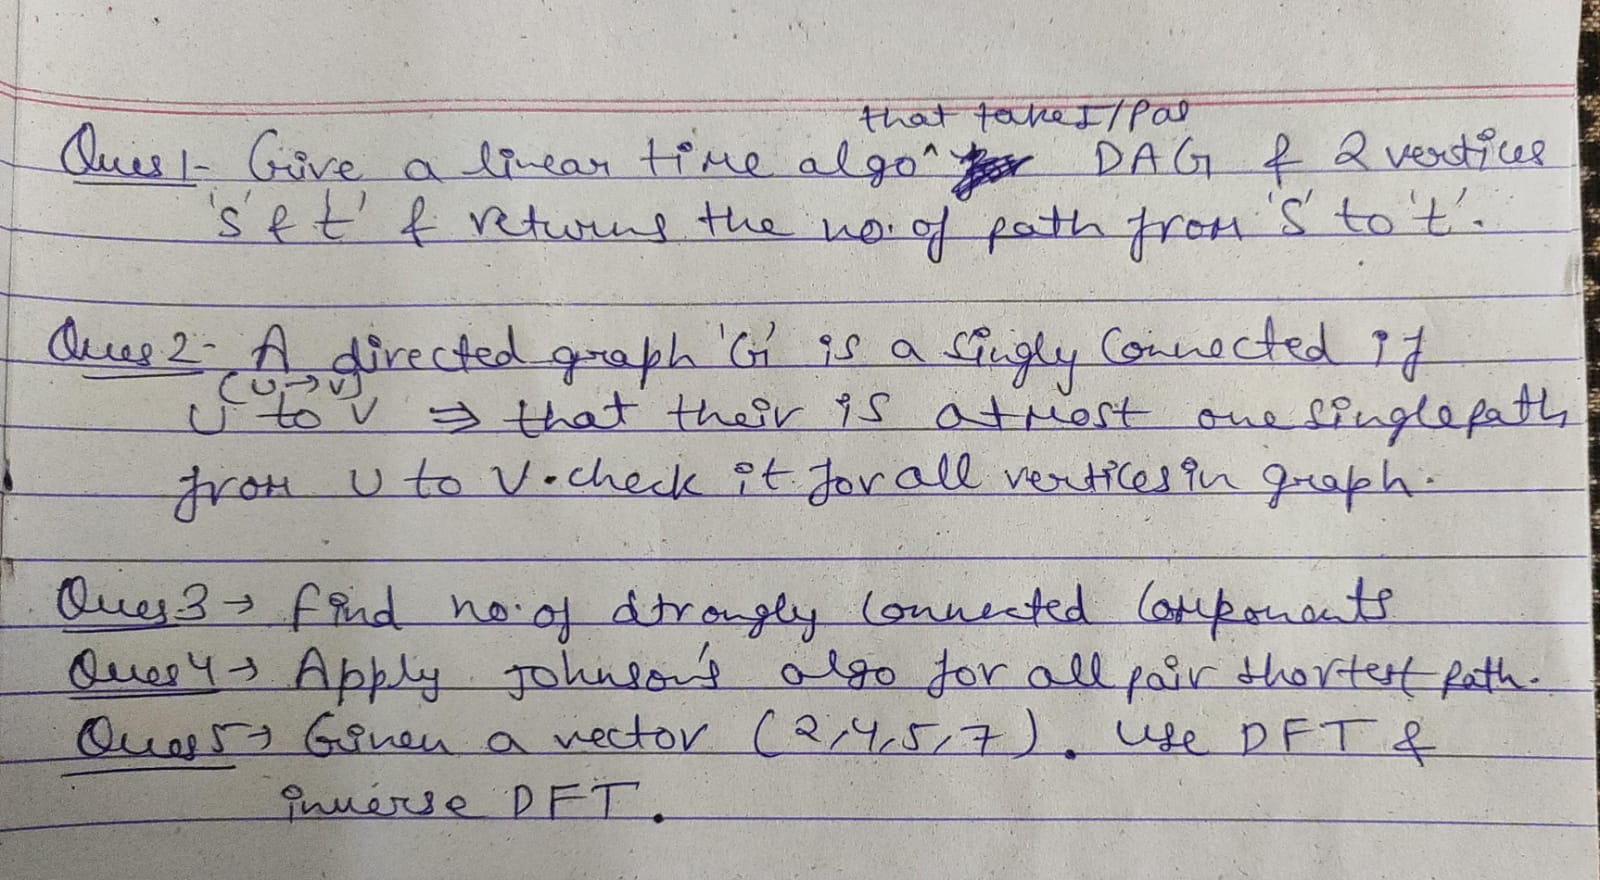 that takes I/P as
Ques 1- Give a linear time algo^ DAG & 2 vertices
's' & t' & returns the no. of path from 's' to 't'.
Ques 2- A directed graph 'G' is a singly connected if
(U→V)
U to V ⇒ that their is atmost one single path
from U to V. check it for all vertices in graph.
Ques 3 → find no. of strongly connected components
Ques 4 → Apply Johnson's algo for all pair shortest path.
Ques 5 → Given a vector (2,4,5,7). Use DFT &
inverse DFT.